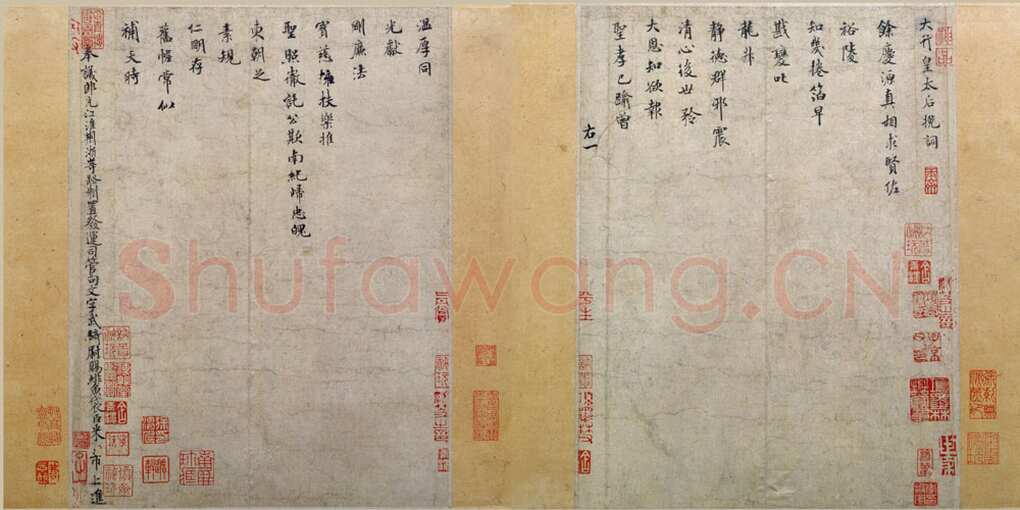 大行皇太后挽詞
餘慶源真相求賢佐
裕陵
知幾捲箔早
戡變叱
龍升
靜德群邪震
清心後世矜
大恩知欲報
聖孝已踰曾
右一
溫厚同
光獻
剛廉法
寶慈擁扶樂推
聖照徹託公欺南紀歸忠魄
東朝之
素規
仁明存
舊幄常似
補天時
奉議郎充江淮荊浙等路制置發運司管勾文字武騎尉賜緋魚袋臣米芾上進
Shufawang.CN